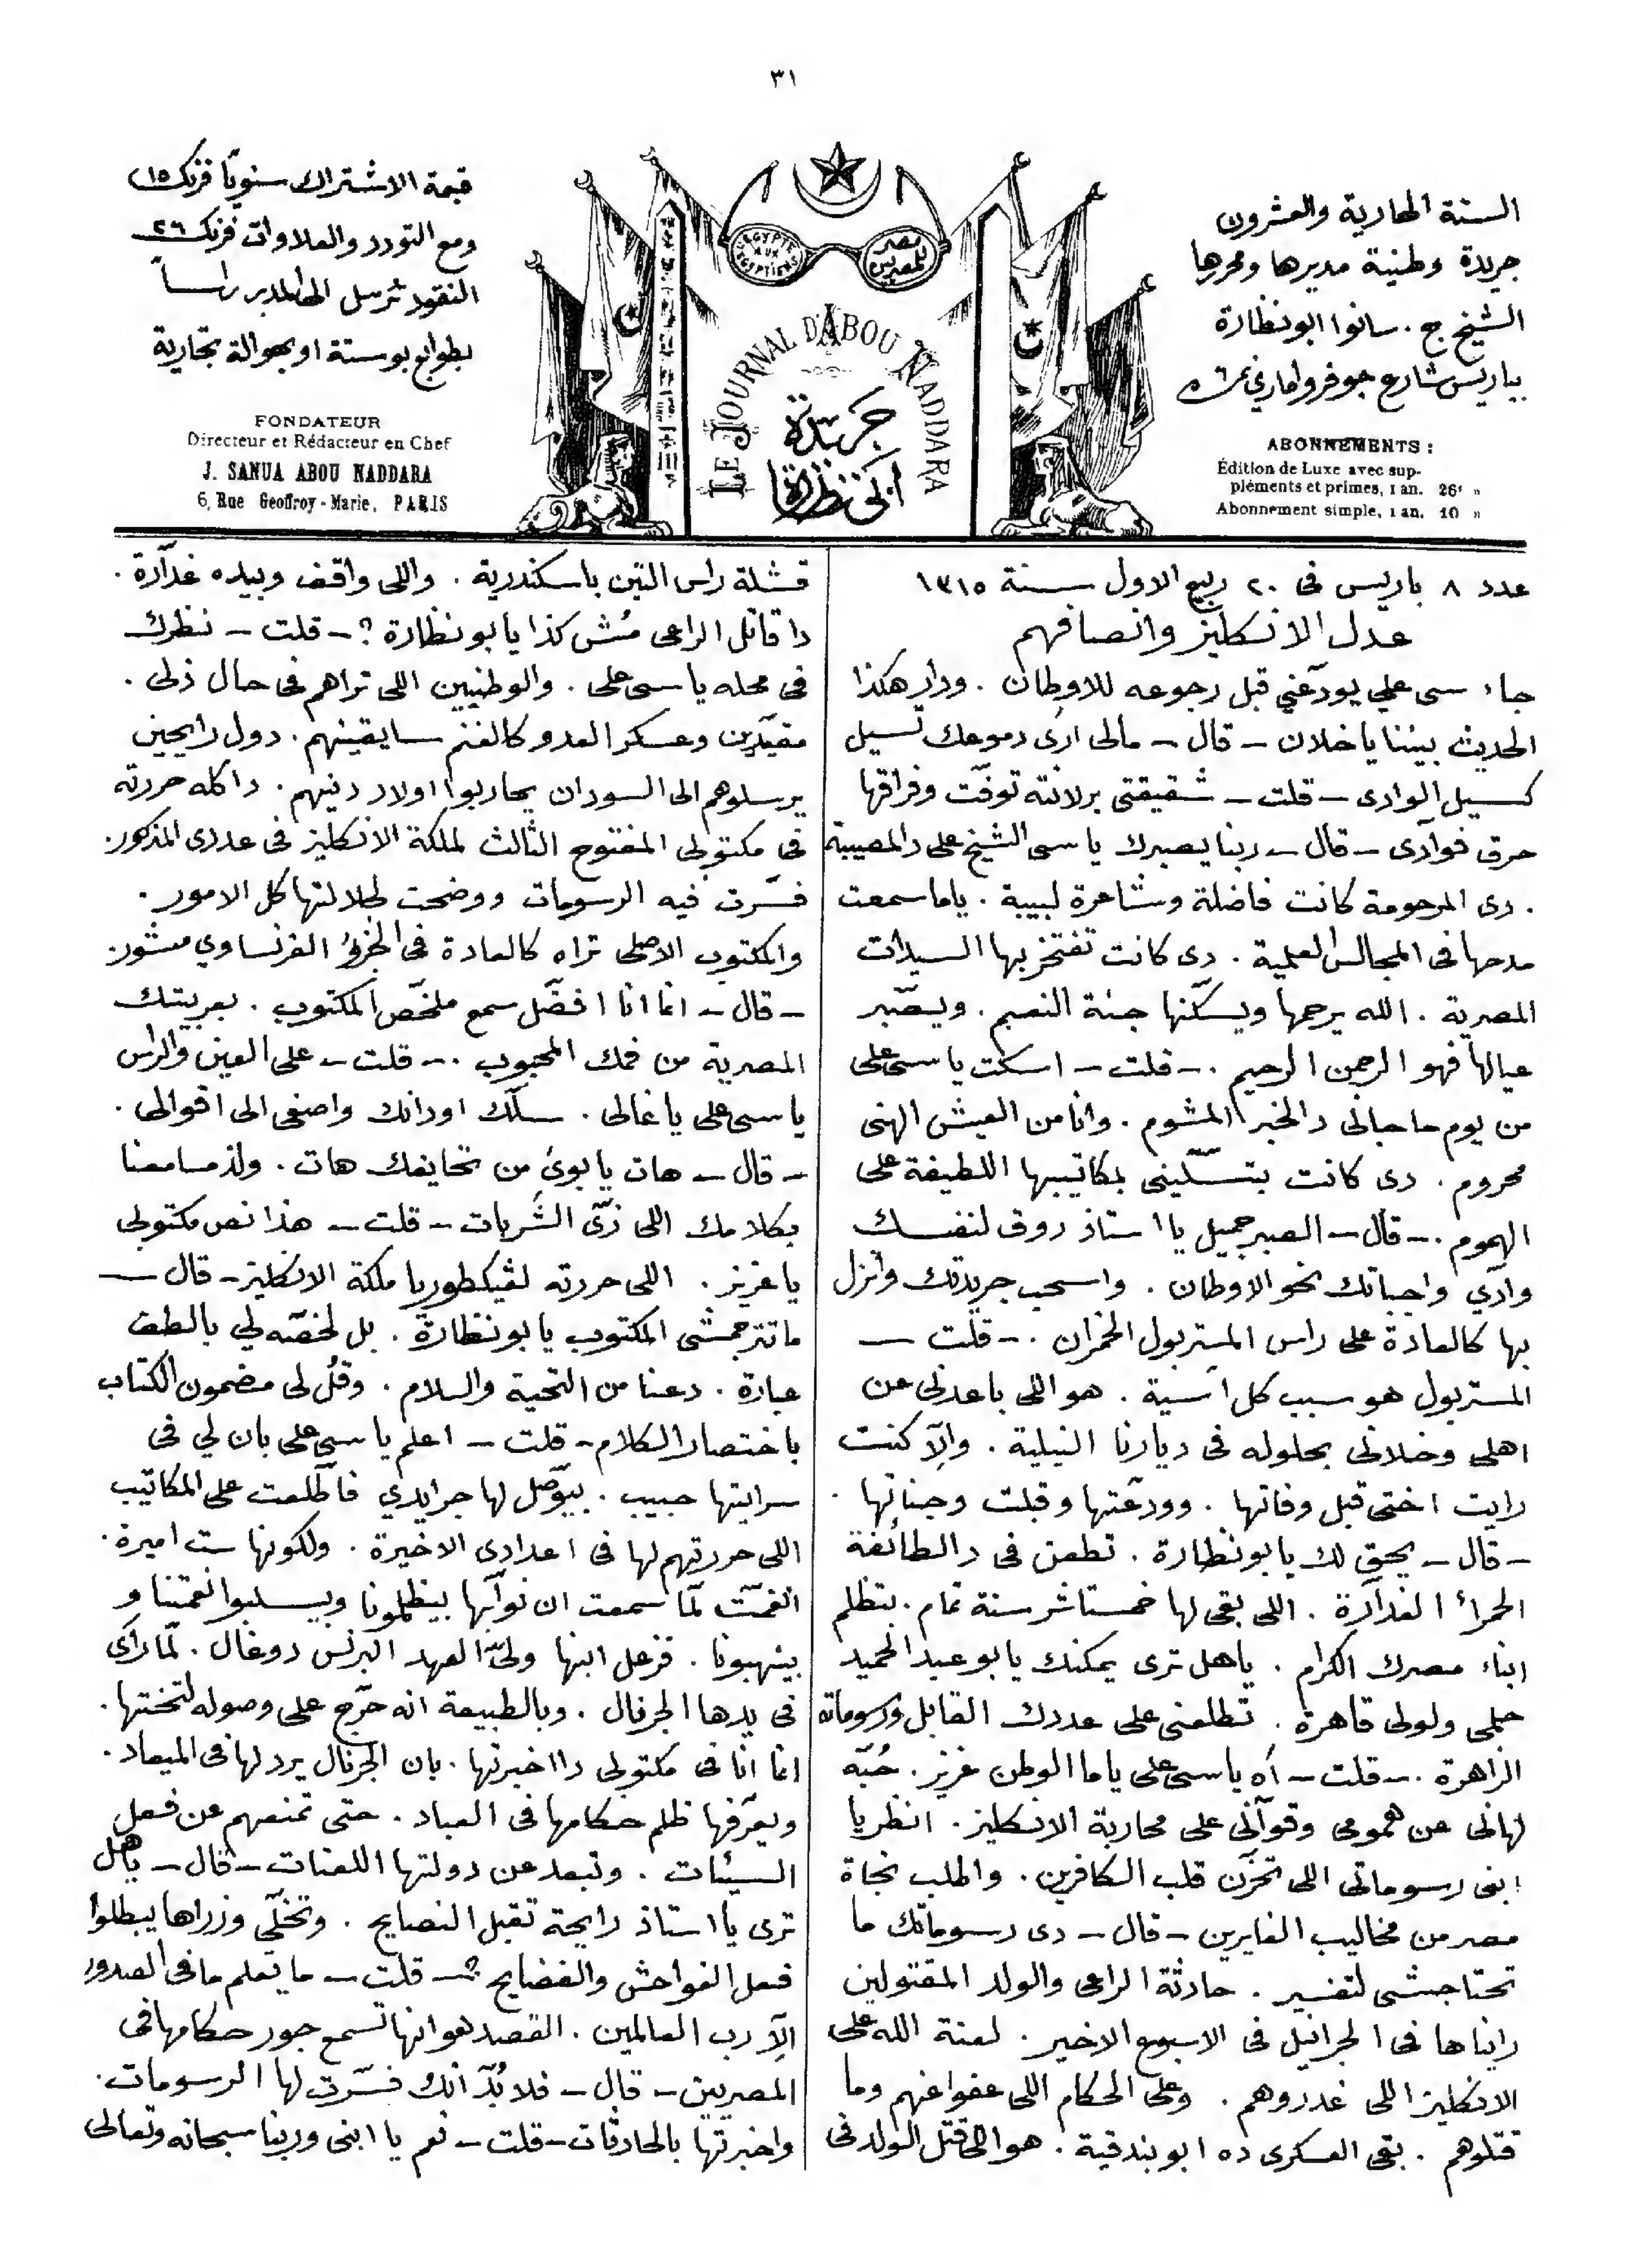 ٣١
السنة الحادية والعشرون
جريدة وطنية مديرها ومحررها
الشيخ ج . سانوا ابو نظارة
بباريس شارع جوفروا ماري نمرة ٦
ABONNEMENTS :
Édition de Luxe avec sup-
pléments et primes, 1 an. 26f »
Abonnement simple, 1 an. 10 »
EGYPTIE AUX EGYPTIENS
مصر للمصريين
LE JOURNAL D'ABOU NADDARA
جريدة
ابي نظارة
قيمة الاشتراك سنويًا فرنك ١٥
ومع التودد والعلاوات فرنك ٢٦
النقود ترسل الى المدير راسًا
بطوابع بوستة او بحوالة تجارية
FONDATEUR
Directeur et Rédacteur en Chef
J. SANUA ABOU NADDARA
6, Rue Geoffroy-Marie, PARIS
عدد ٨ باريس فى ٢٠ ربيع الاول سنة ١٣١٥
عدل الانكليز وانصافهم
جاء سى على يودّعني قبل رجوعه للاوطان . ودار هكذا
الحديث بيننا ياخلان – قال – مالى ارى دموعك تسيل
كسيل الوادى – قلت – شقيقتى برلانته توفّت وفراقها
حرق فوآدى – قال – ربنا يصبرك ياسى الشيخ على دالمصيبة
. دى المرحومة كانت فاضلة وشاعرة لبيبة . ياما سمعت
مدحها فى المجالس العلمية . دى كانت تفتخر بها السيدات
المصرية . الله يرحمها ويسكّنها جنة النعيم . ويصّبر
عيالها فهو الرحمن الرحيم .– قلت – اسكت ياسى على
من يوم ماجانى دالخبر المشوم . وانا من العيش الهنى
محروم . دى كانت بتسلّينى بمكاتيبها اللطيفة على
الهموم .– قال – الصبر جميل يا استاذ روق لنفسك
وادّي واجباتك نحو الاوطان . واسحب جريدتك وانزل
بها كالعادة على راس المستر بول الخمران .– قلت –
المستر بول هو سبب كل أسية . هو اللى باعدنى عن
اهلى وخلانى بحلوله فى ديارنا النيلية . والّا كنت
رايت اختى قبل وفاتها . وودعتها وقبلت وجناتها .
– قال – يحق لك يابو نظارة . تطعن فى دالطائفة
الحمرأ الغدآرة . اللى بقى لها خمستاشر سنة تمام . بتظلم
ابناء مصرك الكرام . ياهل ترى يمكنك يابو عبد الحميد
حلمى ولولى قاهرة . تطلعنى على عددك القابل ورسوماته
الزاهرة .– قلت – أه ياسى على ياما الوطن عزيز . حُبّه
لهانى عن همومى وقوآنى على محاربة الانكليز . انظر يا
ابنى رسوماتى اللى تحزّن قلب الكافرين . والطلب نجاة
مصر من مخاليب الغايرين – قال – دى رسوماتك ما
تحتاجشى لتفسير . حادثة الراعى والولد المقتولين
رايناها فى الجرانيل فى الاسبوع الاخير . لعنة الله على
الانكليز اللى غدروهم . وعلى الحكام اللى عفوا عنهم وما
قتلوهم . بقى العسكرى ده ابو بندقية . هو اللى قتل الولد فى
قشلة راس التين باسكندرية . واللى واقف وبيده غدآرة .
دا قاتل الراعى مُش كذا يابو نظارة ؟ – قلت – نظرك
فى محله ياسى على . والوطنيين اللى تراهم فى حال ذلى .
مقيّدين وعسكر العدو كالغنم سايقينهم . دول رايحين
يرسلوهم الى السودان يحاربوا اولاد دنيهم . داكله حررته
فى مكتوبى المفتوح الثالث لملكة الانكليز فى عددى المذكور .
فسّرت فيه الرسومات ووضحت لجلالتها كل الامور .
والمكتوب الاصلى تراه كالعادة فى الجزؤ الفرنساوي منشور .
– قال – انما انا افضّل سمع ملخّص المكتوب . بعربيتك
المصرية من فمك المحبوب .– قلت – على العين والراس
ياسى على يا غالى . سلّك اودانك واصغى الى اقوالى .
– قال – هات يابويْ من تحايفك هات . ولذ مسامعنا
بكلامك اللى زىّ الشربات – قلت – هذا نص مكتوبى
ياعزيز . اللى حررته لڤيكطوريا ملكة الانكليز – قال –
ماتترجمشى المكتوب يابو نظارة . بل لخصّه لي بالطف
عبارة . دعنا من التحية والسلام . وقُل لى مضمون الكتاب
باختصار الكلام – قلت – اعلم ياسى على بان لي فى
سرايتها حبيب . بيوّصل لها جرايدي فاطّلعت على المكاتيب
اللى حررتهم لها فى اعدادى الاخيرة . ولكونها ست اميرة .
انغمّت لمّا سمعت ان نوآبها بيظلمونا وبيسلبوا نعمتنا و
بينهبونا . فزعل ابنها ولىّ العهد البرنس دوغال . لمّا رأى
فى يدها الجرنال . وبالطبيعة انه حرّج على وصوله لتختها .
انما انا فى مكتوبى دا اخبرتها . بان الجرنال يرد لها فى الميعاد .
ويعرّفها ظلم حكامها فى العباد . حتى تمنعهم عن فعل
السيئات . وتبعد عن دولتها اللعنات – قال – ياهل
ترى يا استاذ رايحة تقبل النصايح . وتخلّى وزراها يبطلوا
فعل الفواحش والفضايح ؟ – قلت – ما يعلم مافى الصدور
الّا رب العالمين . القصد هو انها تسمع جور حكامها فى
المصريين – قال – فلا بُدّ انك فسّرت لها الرسومات .
واخبرتها بالحادثات – قلت – نعم يا ابنى وربنا سبحانه وتعالى